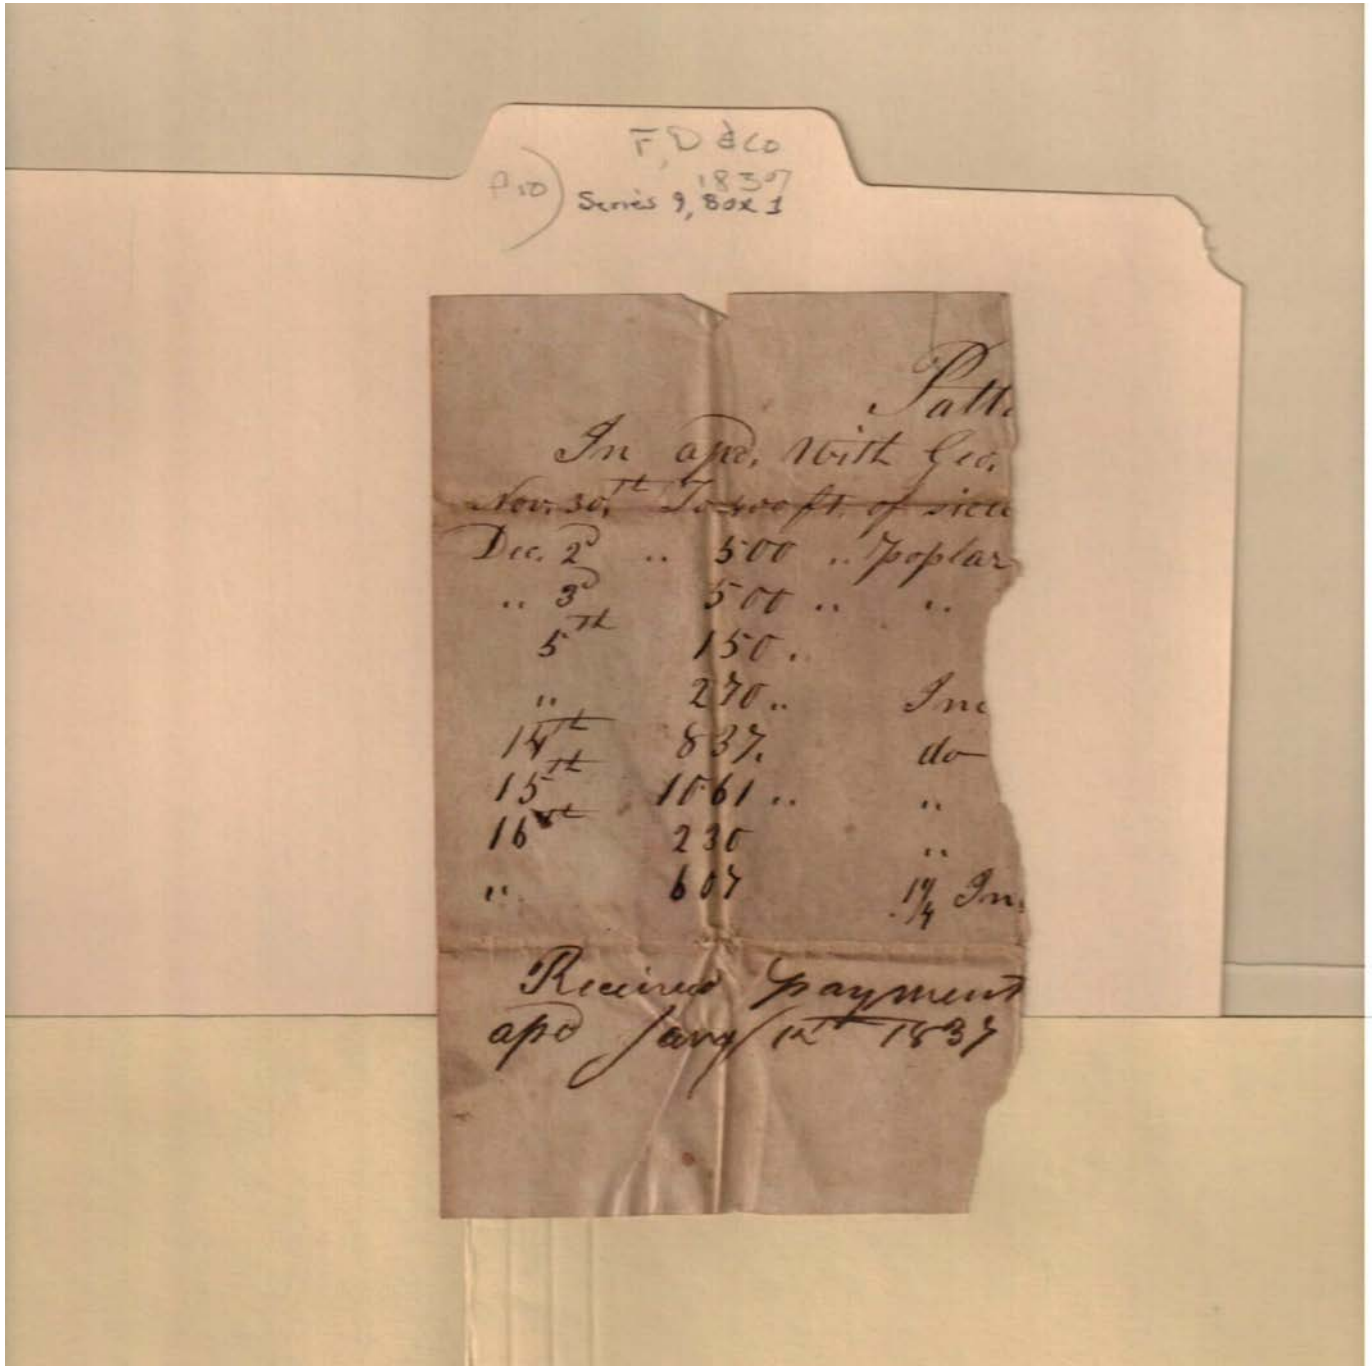 F, D & Co
1837
P 10) Series 9, Box 1
Patt
In apd. With Geo.
Nov. 30th To 400 ft. of
Dec. 2d .. 500 .. Poplar
.. 3d 500 .. ..
5th 150 ..
.. 270 .. Inc
14th 837. do
15th 1061 .. ..
16th 230 ..
.. 607 In
Received payment
apd Jany 12th 1837